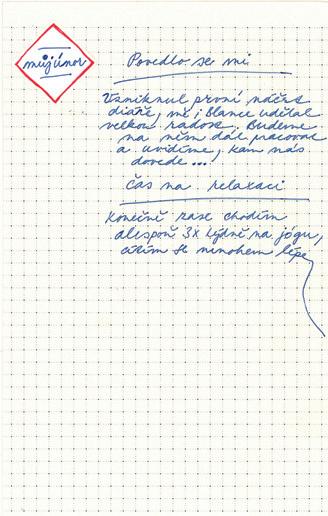 můj únor
Povedlo se mi
Vzniknul první náčrt
diáře, mě i Blance udělal
velkou radost. Budeme
na něm dál pracovat
a uvidíme, kam nás
dovede...
Čas na relaxaci
Konečně zase chodím
alespoň 3x týdně na jógu,
cítím se mnohem lépe